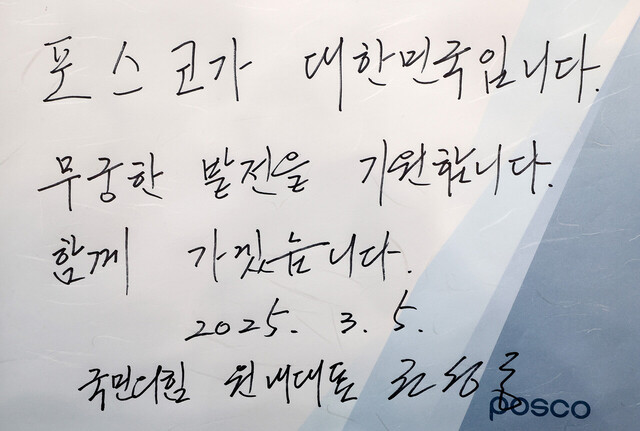 포스코가 대한민국입니다.
무궁한 발전을 기원합니다.
함께 가겠습니다.
2025. 3. 5.
국민의힘 원내대표 권성동
posco